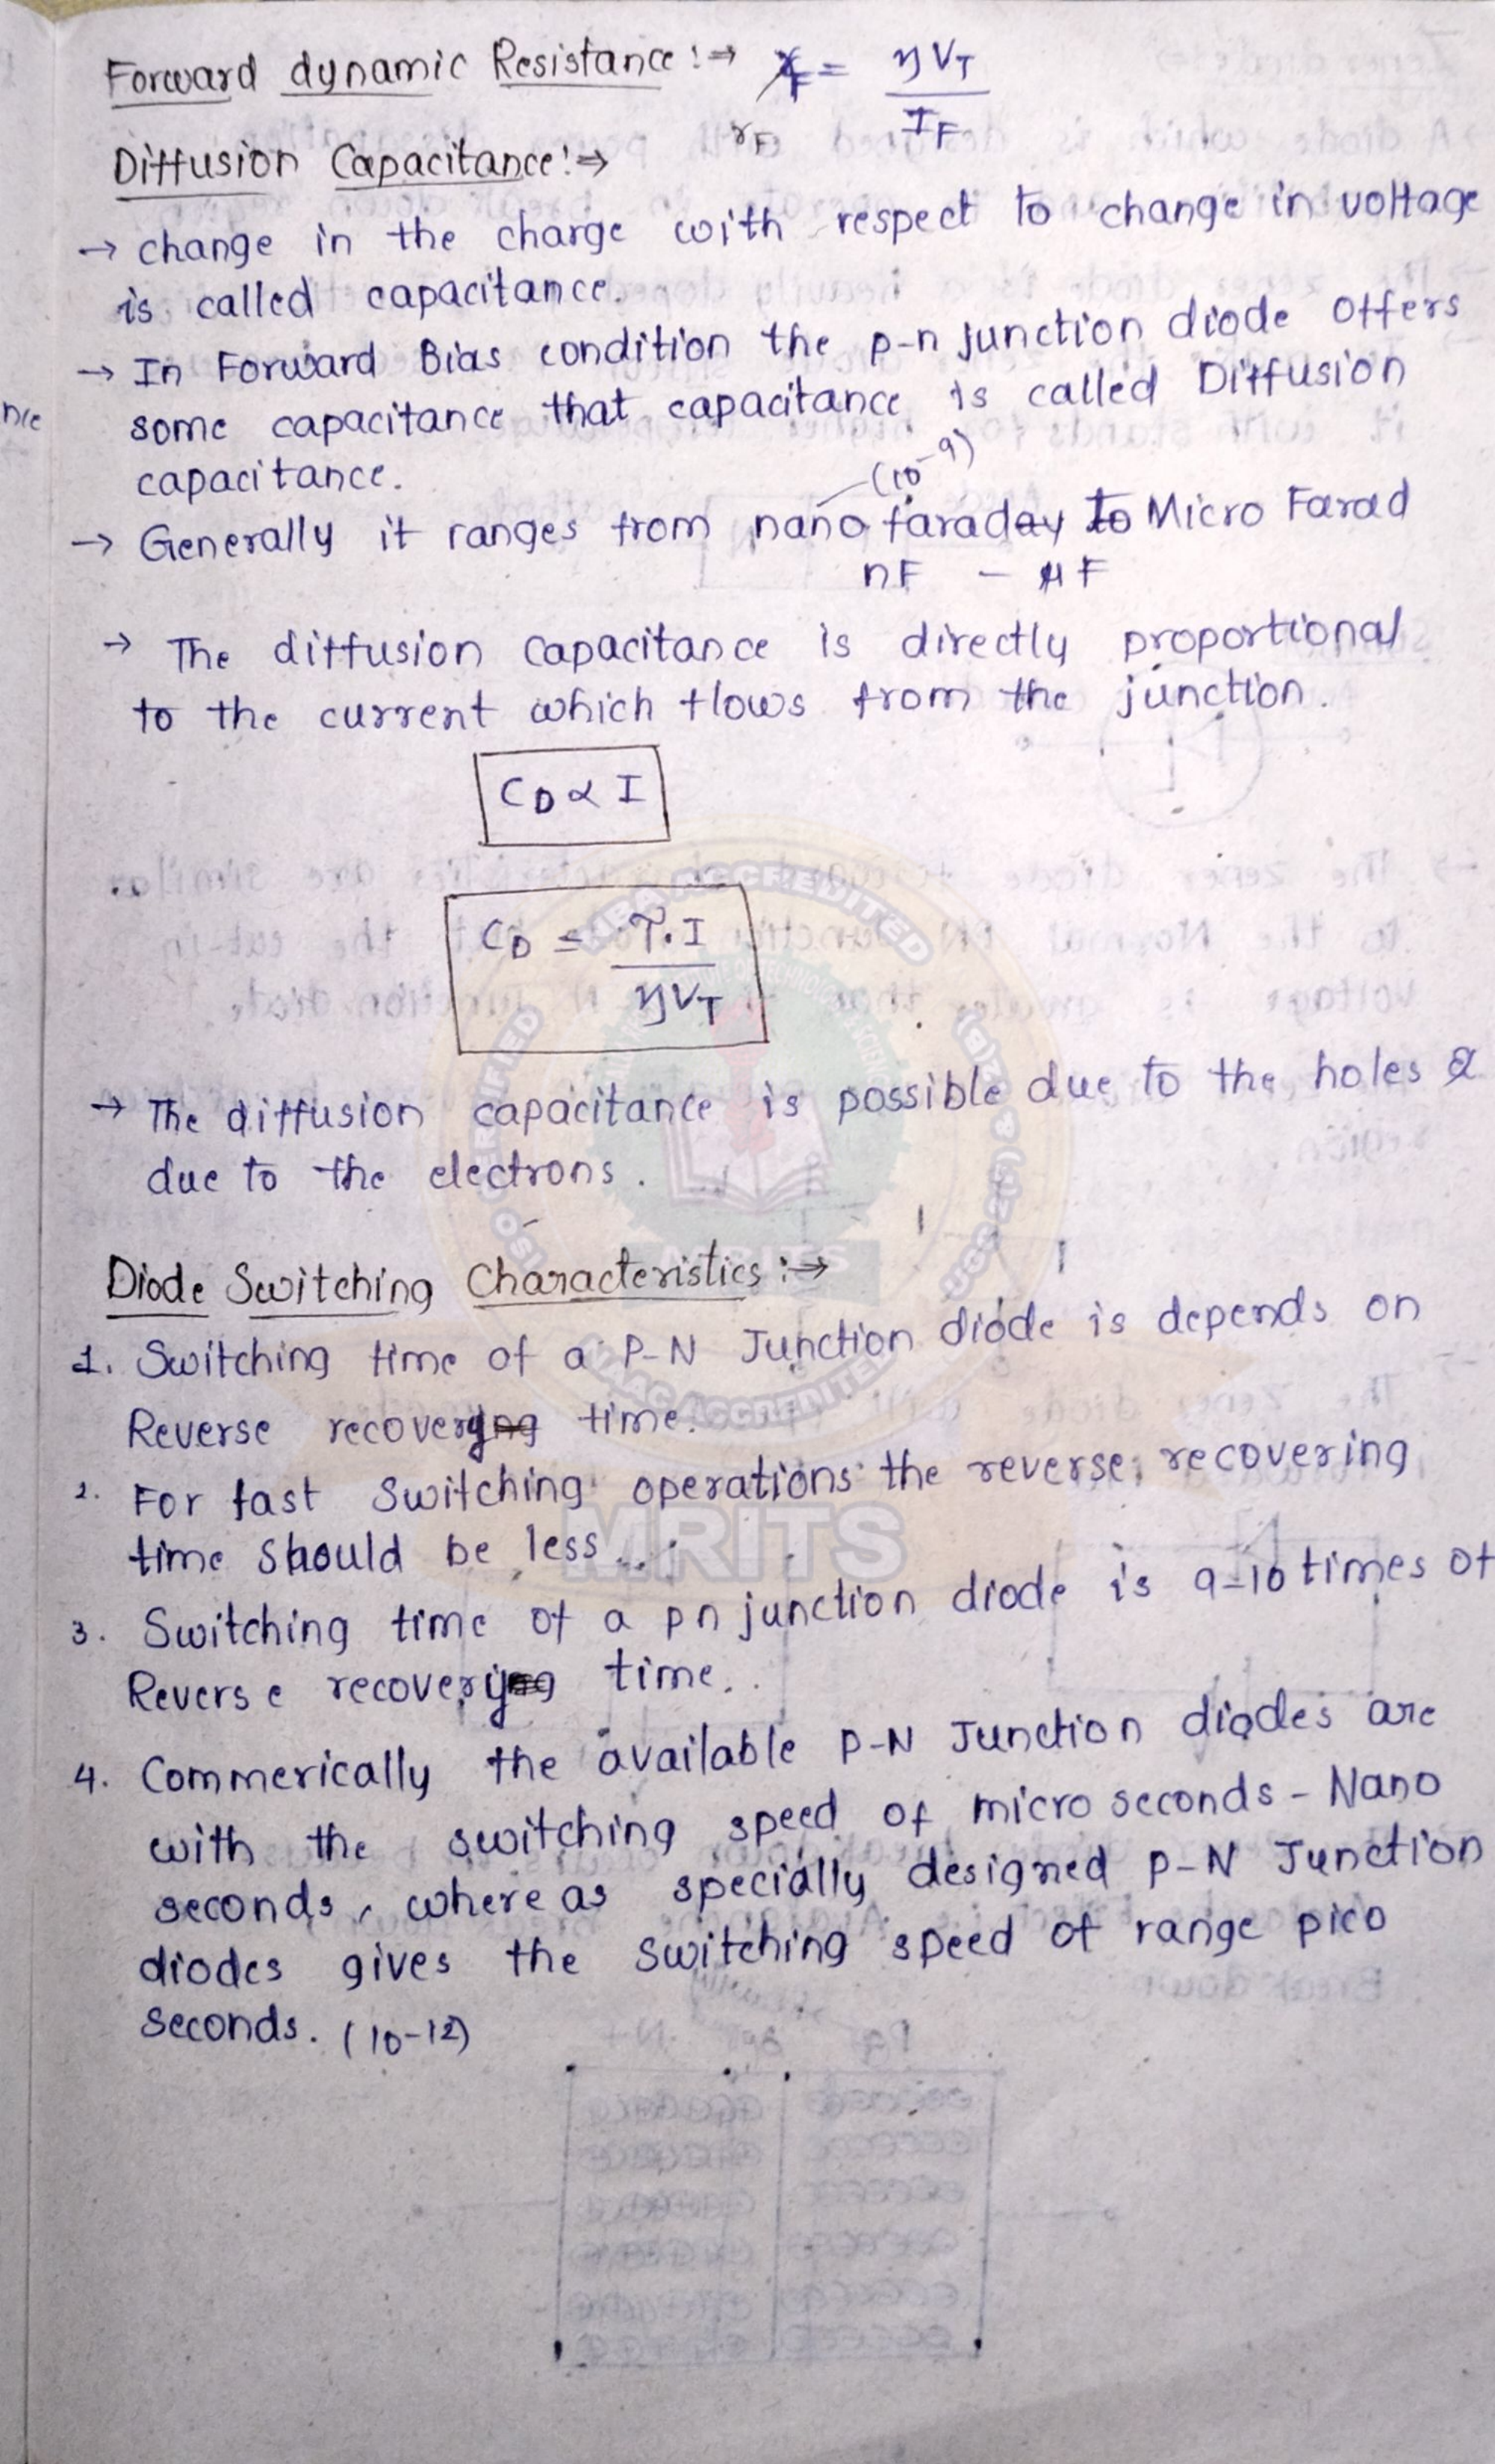 Forward dynamic Resistance :⇒ rF = ηVT / IF
Diffusion Capacitance :⇒
→ change in the charge with respect to change in voltage
is called capacitance.
→ In Forward Bias condition the p-n junction diode offers
some capacitance that capacitance is called Diffusion
capacitance.
(10⁻⁹)
→ Generally it ranges from nano faraday to Micro Farad
nF – μF
→ The diffusion capacitance is directly proportional
to the current which flows from the junction.
CD ∝ I
CD = τ.I / ηVT
→ The diffusion capacitance is possible due to the holes &
due to the electrons.
Diode Switching Characteristics :⇒
1. Switching time of a P-N Junction diode is depends on
Reverse recovery time.
2. For fast switching operations the reverse recovering
time should be less...
3. Switching time of a pn junction diode is 9-10 times of
Reverse recovery time..
4. Commerically the available P-N Junction diodes are
with the switching speed of micro seconds - Nano
seconds, where as specially designed P-N Junction
diodes gives the switching speed of range pico
seconds. (10-12)
NBA ACCREDITED
ISO CERTIFIED
UGC 2(f) & 12(B)
NAAC ACCREDITED
MRITS